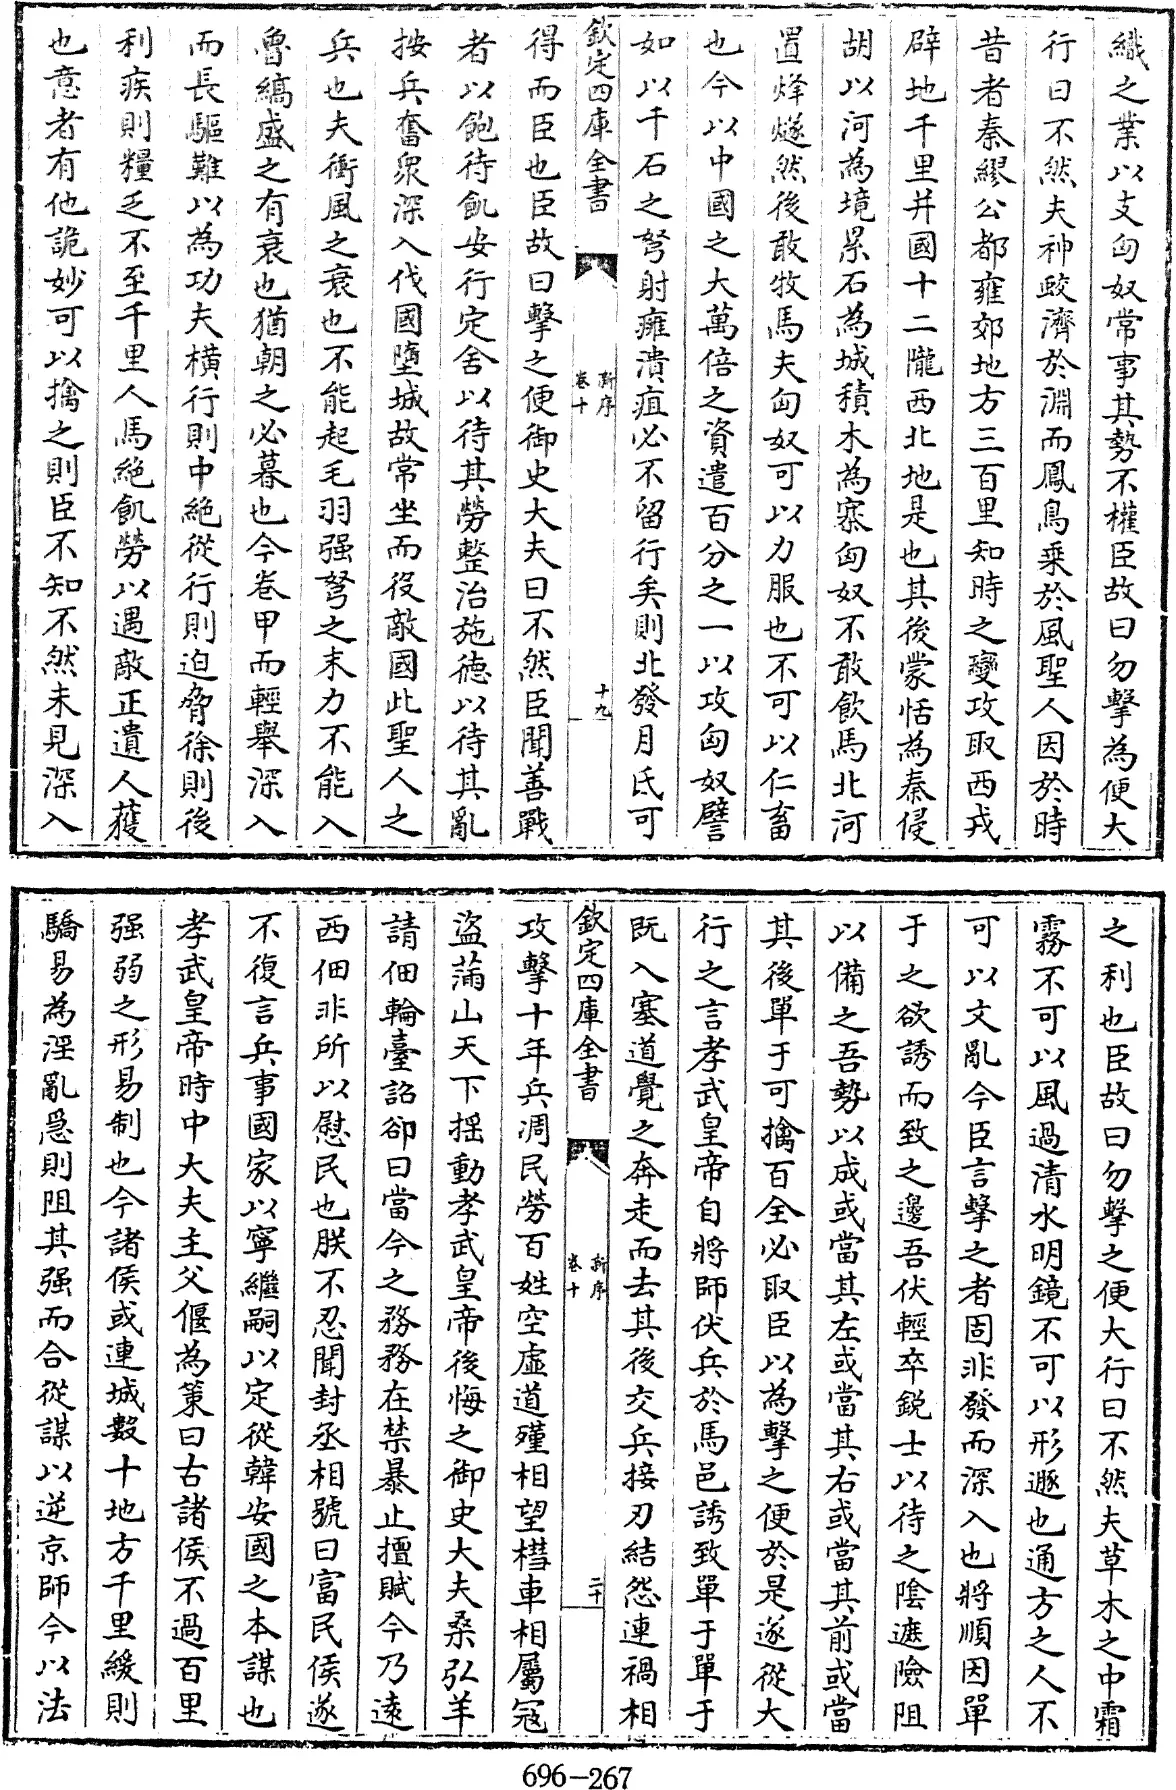 織之業以支匈奴常事其勢不權臣故曰勿擊為便大
行曰不然夫神蛟濟於淵而鳳鳥乘於風聖人因於時
昔者秦繆公都雍郊地方三百里知時之變攻取西戎
辟地千里并國十二隴西北地是也其後蒙恬為秦侵
胡以河為境累石為城積木為寨匈奴不敢飲馬北河
置烽燧然後敢牧馬夫匈奴可以力服也不可以仁畜
也今以中國之大萬倍之資遣百分之一以攻匈奴譬
如以千石之弩射癰潰疽必不留行矣則北發月氏可
欽定四庫全書
新序
卷十
十九
得而臣也臣故曰擊之便御史大夫曰不然臣聞善戰
者以飽待飢安行定舍以待其勞整治施徳以待其亂
按兵奮衆深入伐國墮城故常坐而役敵國此聖人之
兵也夫衝風之衰也不能起毛羽强弩之末力不能入
魯縞盛之有衰也猶朝之必暮也今卷甲而輕舉深入
而長驅難以為功夫橫行則中絶從行則迫脅徐則後
利疾則糧乏不至千里人馬絶飢勞以遇敵正遺人獲
也意者有他詭妙可以擒之則臣不知不然未見深入
之利也臣故曰勿擊之便大行曰不然夫草木之中霜
霧不可以風過清水明鏡不可以形遯也通方之人不
可以文亂今臣言擊之者固非發而深入也將順因單
于之欲誘而致之邊吾伏輕卒鋭士以待之隂遮險阻
以備之吾勢以成或當其左或當其右或當其前或當
其後單于可擒百全必取臣以為擊之便於是遂從大
行之言孝武皇帝自將師伏兵於馬邑誘致單于單于
既入塞道覺之奔走而去其後交兵接刃結怨連禍相
欽定四庫全書
新序
卷十
二十
攻擊十年兵凋民勞百姓空虛道殣相望槥車相屬寇
盜滿山天下揺動孝武皇帝後悔之御史大夫桑弘羊
請佃輪臺詔卻曰當今之務務在禁暴止擅賦今乃逺
西佃非所以慰民也朕不忍聞封丞相號曰富民侯遂
不復言兵事國家以寧繼嗣以定從韓安國之本謀也
孝武皇帝時中大夫主父偃為策曰古諸侯不過百里
强弱之形易制也今諸侯或連城數十地方千里緩則
驕易為淫亂急則阻其强而合從謀以逆京師今以法
696-267